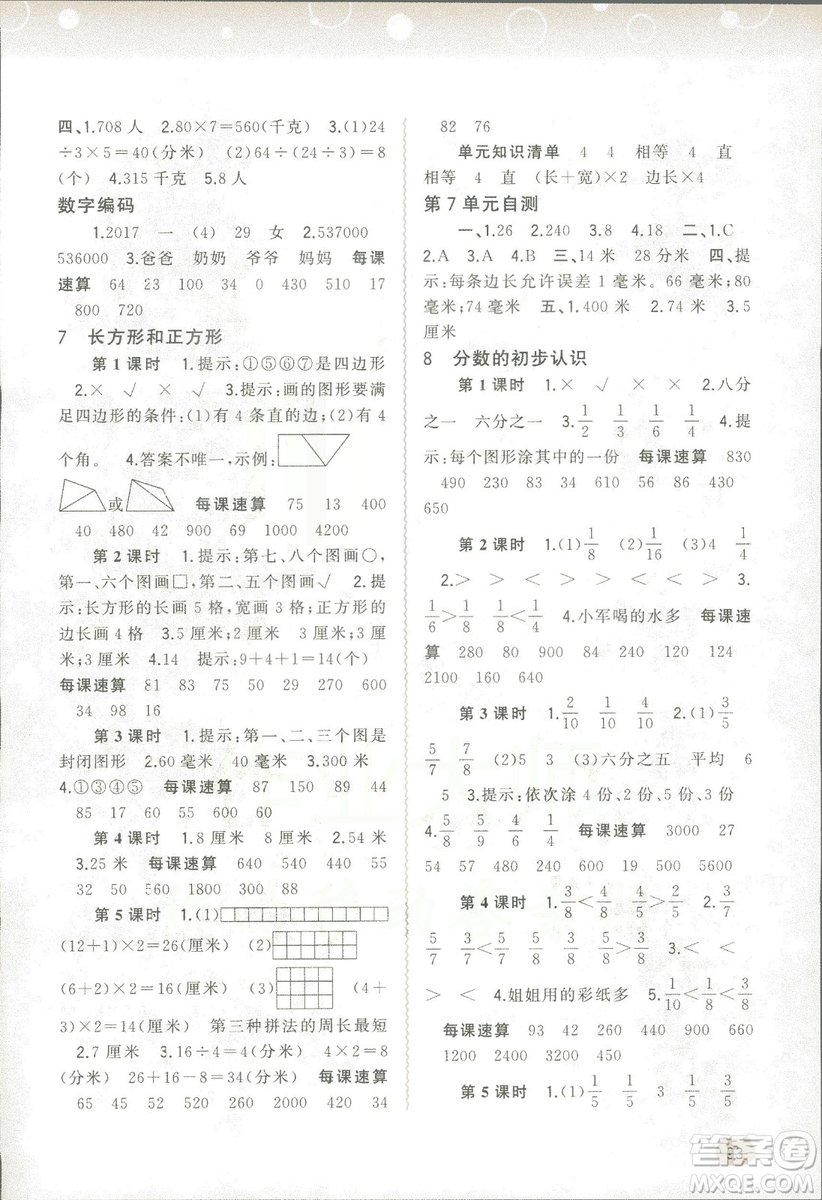 四、1.708 人 2.80×7=560(千克) 3.(1)24
÷3×5=40(分米) (2)64÷(24÷3)=8
(个) 4.315 千克 5.8 人
数字编码
1.2017 一 (4) 29 女 2.537000
536000 3.爸爸 奶奶 爷爷 妈妈 每课
速算 64 23 90 34 0 430 510 17
800 720
7 长方形和正方形
第 1 课时 1.提示:①⑤⑥⑦是四边形
2.× √ × √ 3.提示:画的图形要满
足四边形的条件:(1)有 4 条直的边;(2)有 4
个角。 4.答案不唯一,示例:
或 每课速算 75 13 400
40 480 42 900 69 1000 4200
第 2 课时 1.提示:第七、八个图画○,
第一、六个图画□,第二、五个图画√ 2.提
示:长方形的长画 5 格,宽画 3 格;正方形的
边长画 4 格 3.5 厘米;2 厘米;2 厘米;3 厘
米;3 厘米 4.14 提示:9+4+1=14(个)
每课速算 81 83 75 51 30 270 600
34 98 16
第 3 课时 1.提示:第一、二、三个图是
封闭图形 2.60 毫米 40 毫米 3.300 米
4.①③④⑤ 每课速算 87 150 89 44
85 17 60 55 600 60
第 4 课时 1.8 厘米 8 厘米 2.54 米
3.25 米 每课速算 640 540 340 155
32 50 56 1800 300 88
第 5 课时 1.(1)
(12+1)×2=26(厘米) (2)
(6+2)×2=16(厘米) (3) (4+
3)×2=14(厘米) 第三种拼法的周长最短
2.7 厘米 3.16÷4=4(分米) 4×2=8
(分米) 26+16-8=34(分米) 每课速算
65 45 52 150 2400 200 420 34
82 76
单元知识清单 4 4 相等 4 直
相等 4 直 (长+宽)×2 边长×4
第 7 单元自测
一、1.26 2.240 3.8 4.18 二、1.C
2.A 3.A 4.B 三、14 米 28 分米 四、提
示:每条边长允许误差 1 毫米。 66 毫米;80
毫米;74 毫米 五、1.400 米 2.74 米 3.5
厘米
8 分数的初步认识
第 1 课时 1.× √ × × 2.八分
之一 六分之一 3.1/2 1/3 1/4 1/4 4.提
示:每个图形涂其中的一份 每课速算 830
490 230 60 380 650 85 430
650
第 2 课时 1.(1)1/8 (2)1/16 (3)4 1/4
2.> > < > > < > 3.
1/6>1/8 1/4<1/3 4.小军喝的水多 每课速
算 280 80 900 54 480 124
2100 160 64 240
第 3 课时 1.2/10 1/10 4/10 2.(1)3/5
5/7 7/8 (2)5 3 (3)六分之五 平均 6
5 3.提示:依次涂 4 份、2 份、5 份、3 份
4.5/8 5/9 4/6 1/4 每课速算 3000 27
54 57 480 220 800 5600
第 4 课时 1.3/8<4/8 4/5>2/5 2.5/7
5/7 3/7<5/7 5/8 3/8 5/8>3/8 3.> < <
> > < 4.姐姐用的彩纸多 5.1/10<1/8<3/8
每课速算 93 42 260 440 900 660
1200 2400 60 450
第 5 课时 1.(1)1/5 3/5 1/5 3/5 3/5
答案卷
MXQE.COM